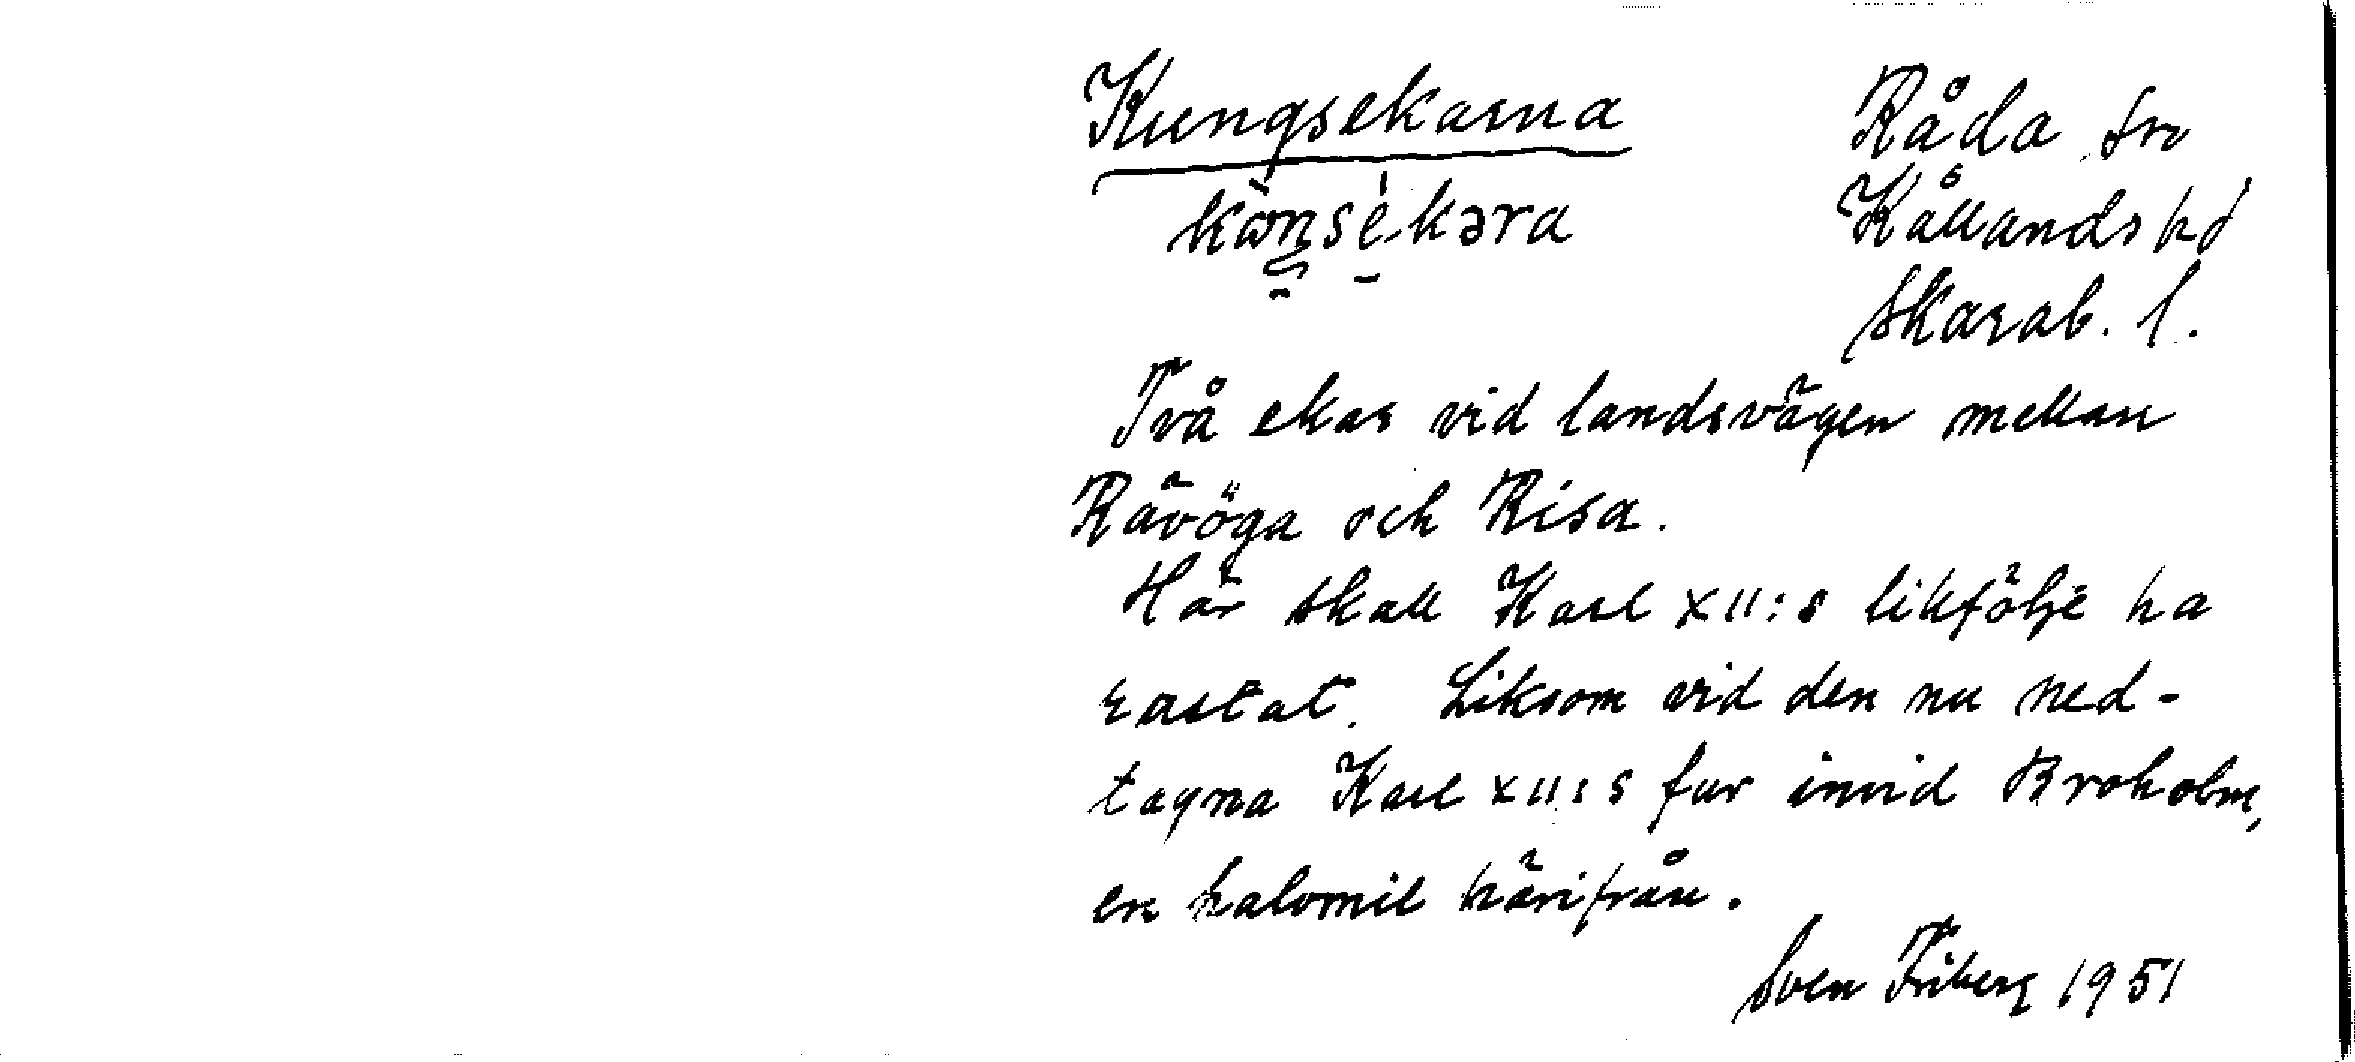 Kungsekarna
Råda sn
kåŋsékəra
Kållands hd
Skarab. l.
Två ekar vid landsvägen mellan
Rävöga och Risa.
Här skall Karl XII:s likfölje ha
rastat. Liksom vid den nu ned-
tagna Karl XII:s fur invid Broholm,
en halvmil härifrån.
Sven Friberg 1951